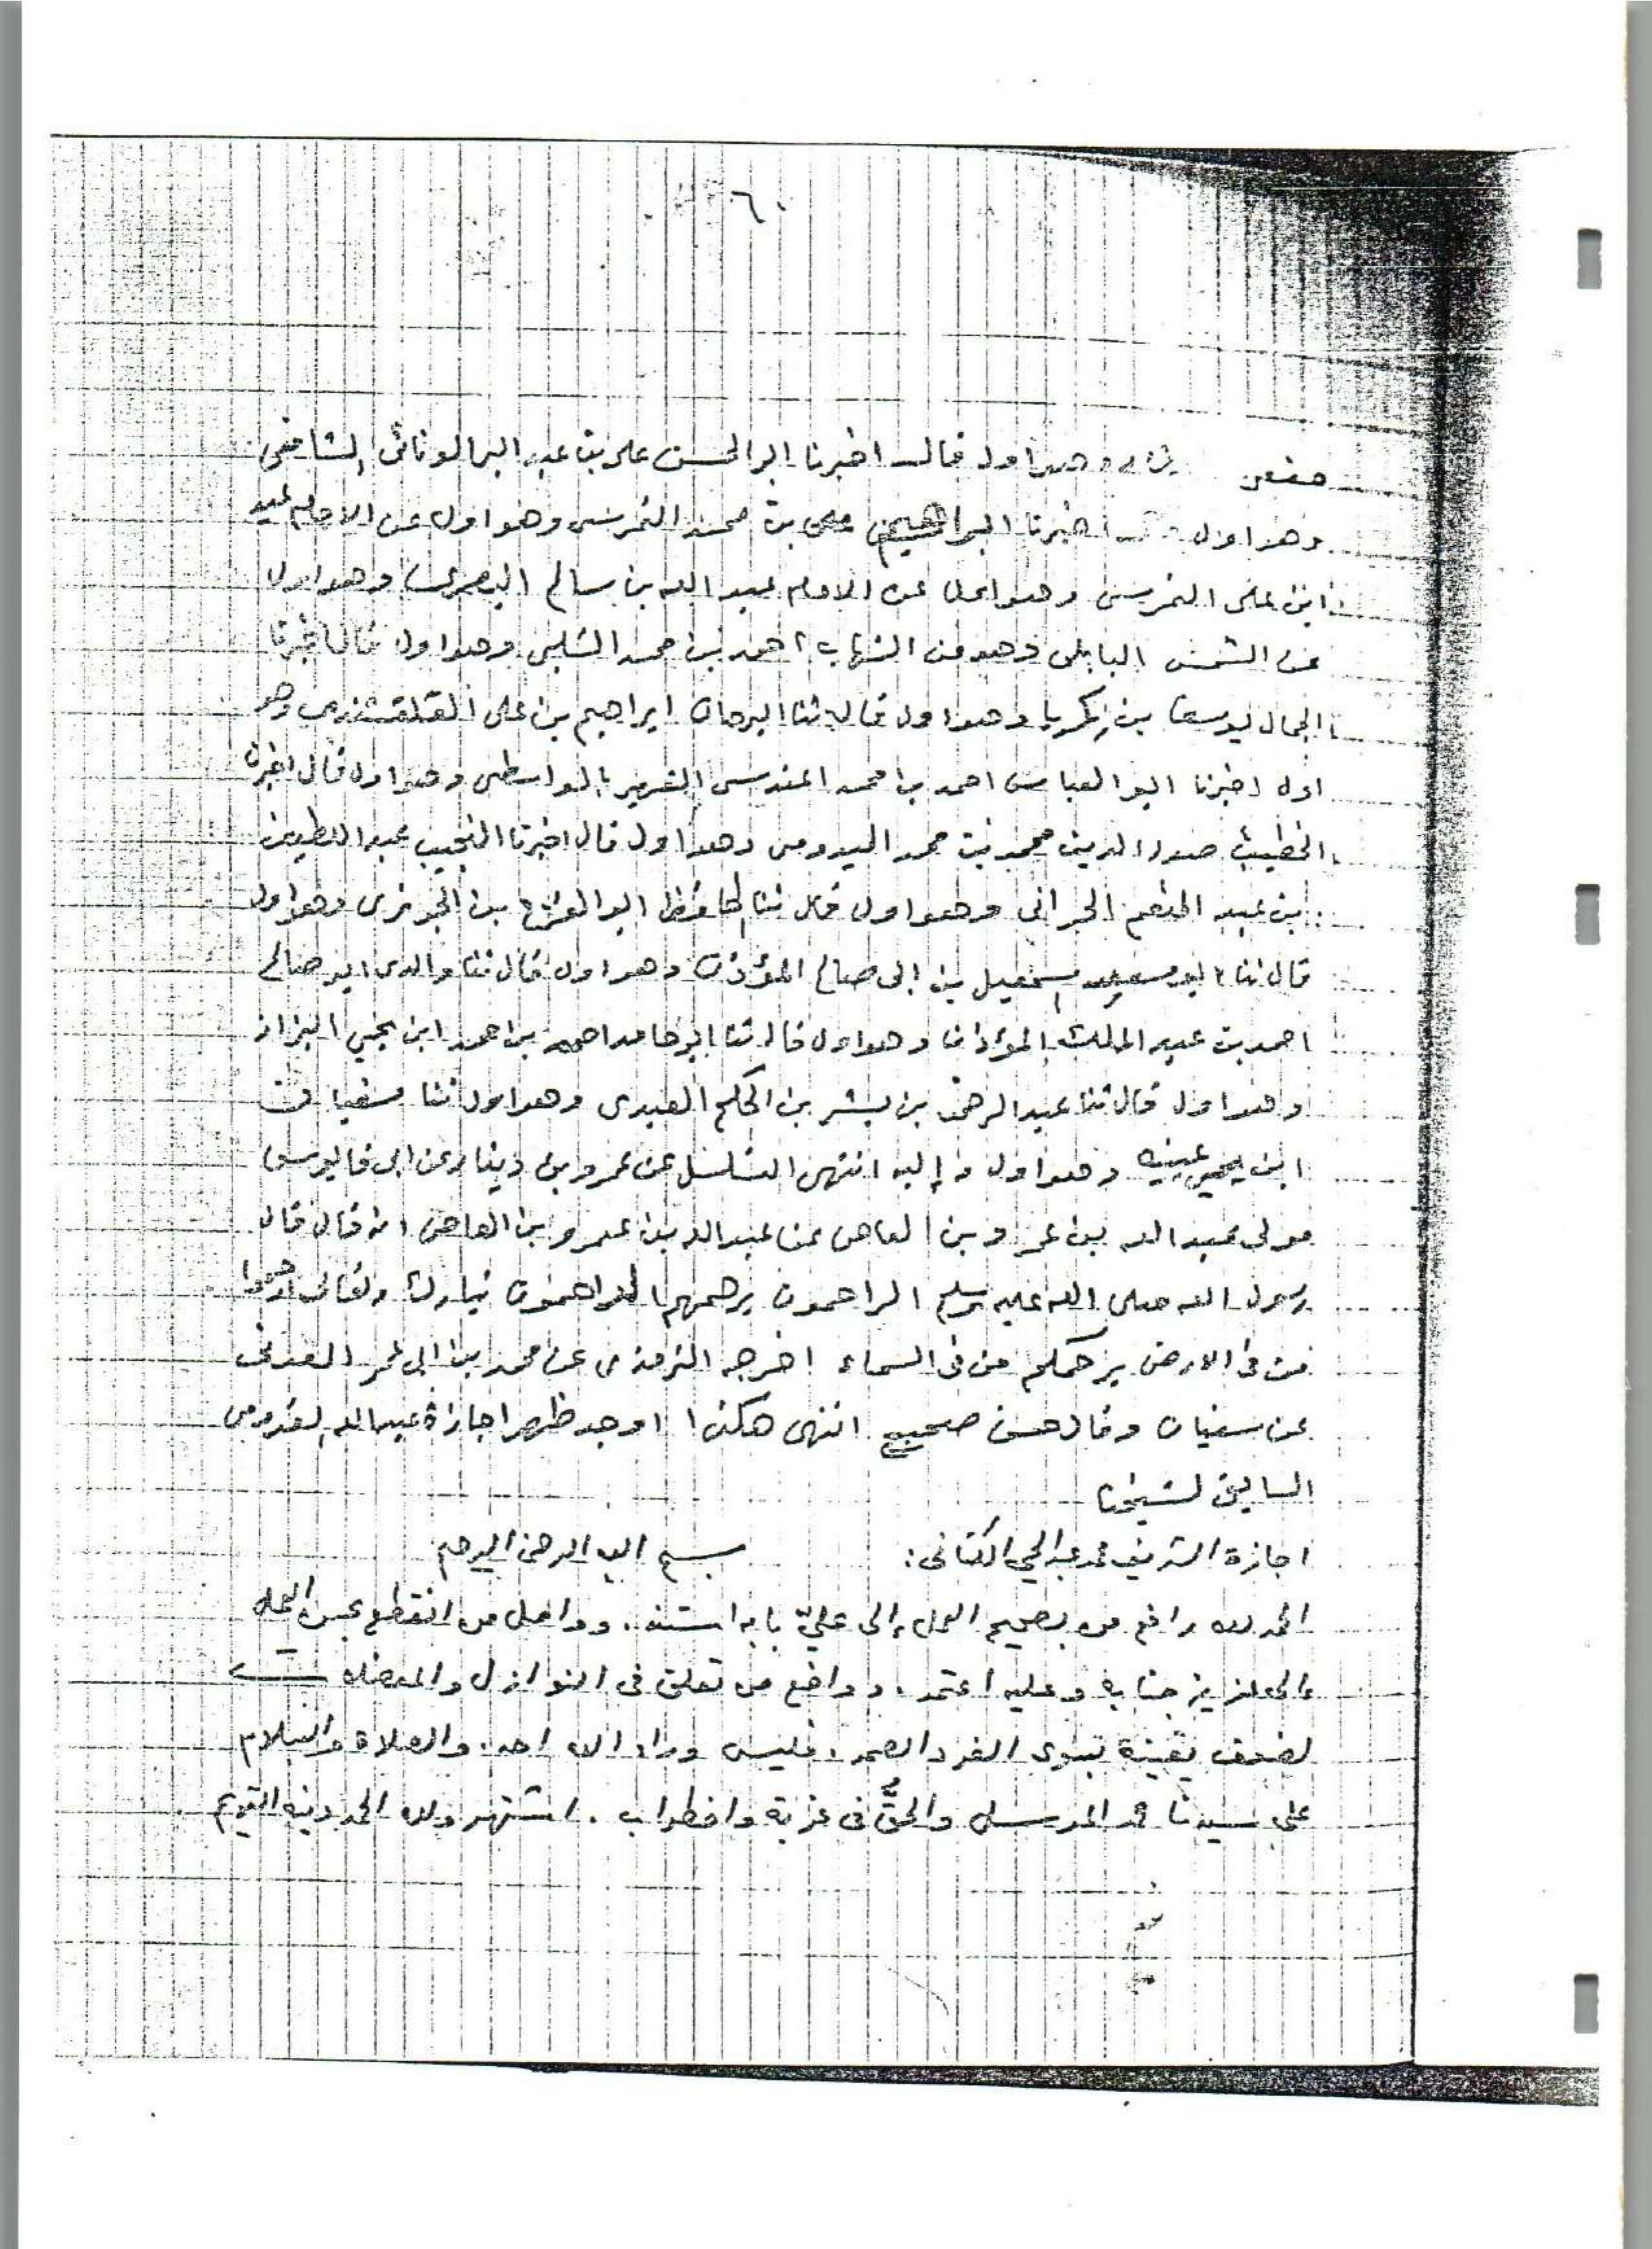 ٦
وهو اول قال اخبرنا ابو الحسن على بن عبد البر الونائى الشافعى
وهو اول اخبرنا ابراهيم على بن محمد النمرسى وهو اول عن الامام عيد
ابن على النمرسى وهو اول عن الامام عبد الله بن سالم البصرى وهو اول
عن الشمس البابلى وهو من الشهاب احمد بن محمد الشلبى وهو اول قال اخبرنا
الجمال يوسف بن زكريا وهو اول قال ثنا البرهان ابراهيم بن على القلقشندى وهو
اول اخبرنا ابو العباس احمد بن محمد المقدسى الشهير بالواسطى وهو اول قال اخبرنا
الخطيب صدر الدين محمد بن محمد الميدومى وهو اول قال اخبرنا النجيب عبد اللطيف
بن عبد المنعم الحرانى وهو اول قال ثنا الحافظ ابو الفرج بن الجوزى وهو اول
قال ثنا ابو سعيد إسمعيل بن ابى صالح المؤذن وهو اول قال ثنا والدى ابو صالح
احمد بن عبد الملك المؤذن وهو اول قال ثنا ابو حامد احمد بن احمد ابن يحيى البزاز
وهو اول قال ثنا عبد الرحمن بن بشر بن الحكم العبدى وهو اول ثنا سفيان
ابن عيينه وهو اول و إليه انتهى التسلسل عن عمرو بن دينار عن ابى قابوس
مولى عبد الله بن عمرو بن العاص عن عبد الله بن عمرو بن العاص انه قال قال
رسول الله صلى الله عليه وسلم الراحمون يرحمهم تبارك وتعالى ارحموا
من فى الارض يرحمكم من فى السماء اخرجه الترمذى عن محمد بن ابى عمر العدنى
عن سفيان وقال حسن صحيح انتهى هكذا اوجد ظهر اجازة عبد الله القدومى
السابق لشيخنا
اجازة الشريف محمد عبد الحي الكتانى: بسم الله الرحمن الرحيم
الحمد لله رافع من بصحيح العمل إلى عليّ بابه استند. وواصل من انقطع بحسن العمل
العزيز جنابه وعليه اعتمد. وواضع من تعلق فى النوازل والمعضلات
لضعف يقينه بسوى الفرد الصمد. فليس وراء الله احد. والصلاة والسلام
على سيدنا محمد المرسل والحقُّ فى غربة واضطراب. اشتهر ولله الحمد دينه القويم